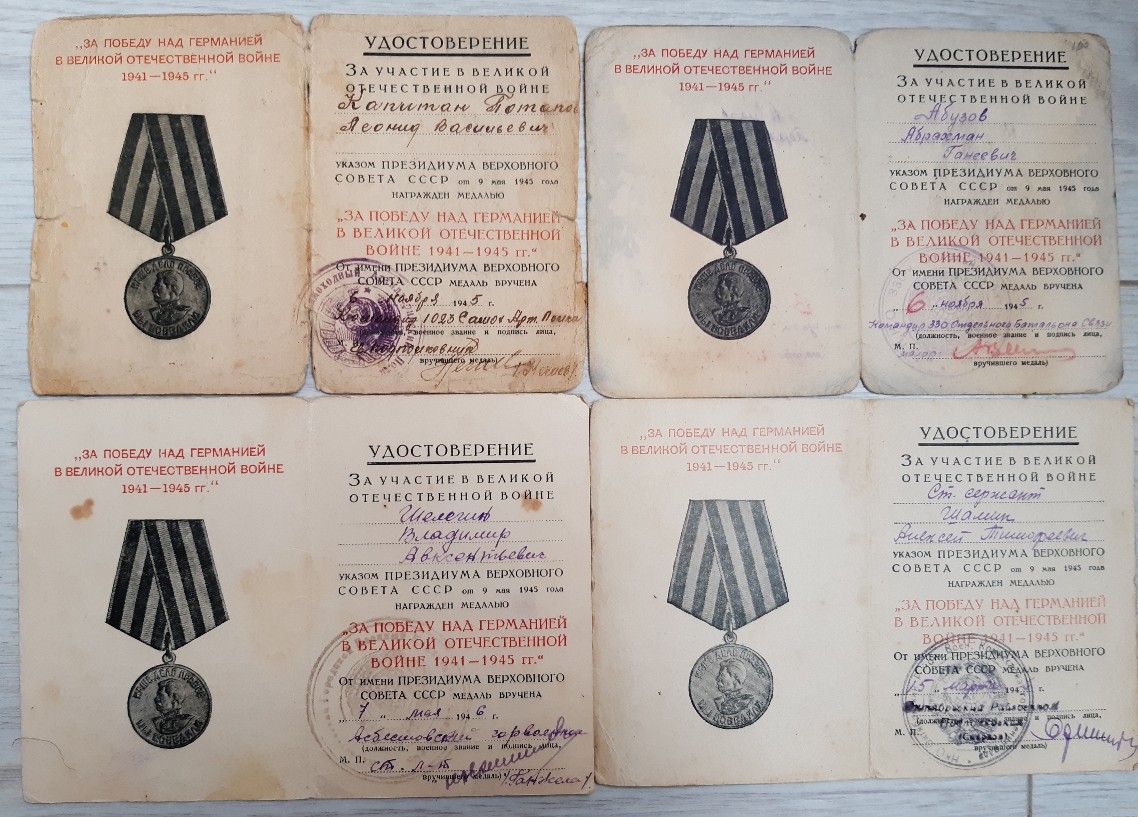 „ЗА ПОБЕДУ НАД ГЕРМАНИЕЙ
В ВЕЛИКОЙ ОТЕЧЕСТВЕННОЙ ВОЙНЕ
1941—1945 гг.“
НАШЕ ДЕЛО ПРАВОЕ
МЫ ПОБЕДИЛИ
УДОСТОВЕРЕНИЕ
ЗА УЧАСТИЕ В ВЕЛИКОЙ
ОТЕЧЕСТВЕННОЙ ВОЙНЕ
Капитан Потапов
Леонид Васильевич
УКАЗОМ ПРЕЗИДИУМА ВЕРХОВНОГО
СОВЕТА СССР от 9 мая 1945 года
НАГРАЖДЕН МЕДАЛЬЮ
„ЗА ПОБЕДУ НАД ГЕРМАНИЕЙ
В ВЕЛИКОЙ ОТЕЧЕСТВЕННОЙ
ВОЙНЕ 1941—1945 гг.“
ОТ ИМЕНИ ПРЕЗИДИУМА ВЕРХОВНОГО
СОВЕТА СССР МЕДАЛЬ ВРУЧЕНА
6 ноября 1945 г.
1023 Самох Арт. Полка
военное звание и подпись лица,
подполковник
вручившего медаль)
„ЗА ПОБЕДУ НАД ГЕРМАНИЕЙ
В ВЕЛИКОЙ ОТЕЧЕСТВЕННОЙ ВОЙНЕ
1941—1945 гг.“
НАШЕ ДЕЛО ПРАВОЕ
МЫ ПОБЕДИЛИ
УДОСТОВЕРЕНИЕ
ЗА УЧАСТИЕ В ВЕЛИКОЙ
ОТЕЧЕСТВЕННОЙ ВОЙНЕ
Абузов
Абрахман
Ганеевич
УКАЗОМ ПРЕЗИДИУМА ВЕРХОВНОГО
СОВЕТА СССР от 9 мая 1945 года
НАГРАЖДЕН МЕДАЛЬЮ
„ЗА ПОБЕДУ НАД ГЕРМАНИЕЙ
В ВЕЛИКОЙ ОТЕЧЕСТВЕННОЙ
ВОЙНЕ 1941—1945 гг.“
ОТ ИМЕНИ ПРЕЗИДИУМА ВЕРХОВНОГО
СОВЕТА СССР МЕДАЛЬ ВРУЧЕНА
„6“ ноября 1945 г.
Командир 330 Отдельного Батальона Связи
(должность, военное звание и подпись лица,
М. П. майор
вручившего медаль)
„ЗА ПОБЕДУ НАД ГЕРМАНИЕЙ
В ВЕЛИКОЙ ОТЕЧЕСТВЕННОЙ ВОЙНЕ
1941—1945 гг.“
НАШЕ ДЕЛО ПРАВОЕ
МЫ ПОБЕДИЛИ
УДОСТОВЕРЕНИЕ
ЗА УЧАСТИЕ В ВЕЛИКОЙ
ОТЕЧЕСТВЕННОЙ ВОЙНЕ
Шелегин
Владимир
Авксентьевич
УКАЗОМ ПРЕЗИДИУМА ВЕРХОВНОГО
СОВЕТА СССР от 9 мая 1945 года
НАГРАЖДЕН МЕДАЛЬЮ
„ЗА ПОБЕДУ НАД ГЕРМАНИЕЙ
В ВЕЛИКОЙ ОТЕЧЕСТВЕННОЙ
ВОЙНЕ 1941—1945 гг.“
ОТ ИМЕНИ ПРЕЗИДИУМА ВЕРХОВНОГО
СОВЕТА СССР МЕДАЛЬ ВРУЧЕНА
„7“ мая 1946 г.
Асбестовский горвоенком
(должность, военное звание и подпись лица,
М. П. ст. л-т
вручившего медаль)
„ЗА ПОБЕДУ НАД ГЕРМАНИЕЙ
В ВЕЛИКОЙ ОТЕЧЕСТВЕННОЙ ВОЙНЕ
1941—1945 гг.“
НАШЕ ДЕЛО ПРАВОЕ
МЫ ПОБЕДИЛИ
УДОСТОВЕРЕНИЕ
ЗА УЧАСТИЕ В ВЕЛИКОЙ
ОТЕЧЕСТВЕННОЙ ВОЙНЕ
Ст. сержант
Шамин
Алексей Тимофеевич
УКАЗОМ ПРЕЗИДИУМА ВЕРХОВНОГО
СОВЕТА СССР от 9 мая 1945 года
НАГРАЖДЕН МЕДАЛЬЮ
„ЗА ПОБЕДУ НАД ГЕРМАНИЕЙ
В ВЕЛИКОЙ ОТЕЧЕСТВЕННОЙ
ВОЙНЕ 1941—1945 гг.“
ОТ ИМЕНИ ПРЕЗИДИУМА ВЕРХОВНОГО
СОВЕТА СССР МЕДАЛЬ ВРУЧЕНА
марта 194 г.
Октябрьский Райвоенком
(должность, военное звание и подпись лица,
М. П.
вручившего медаль)